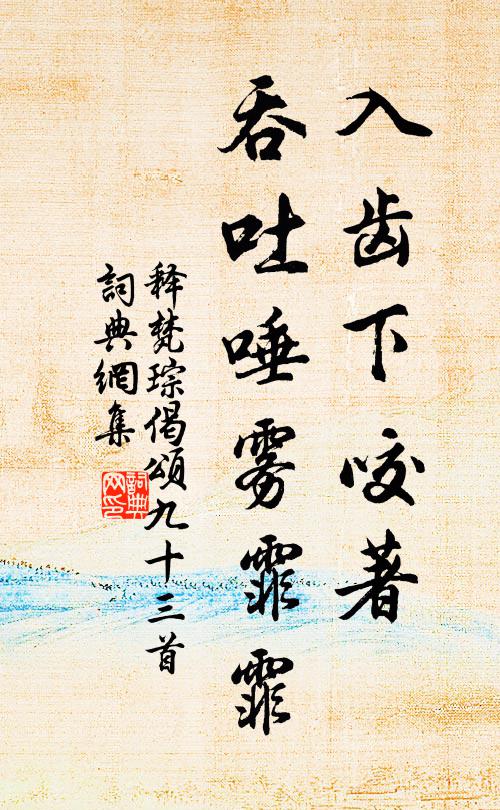 入齿下咬著
吞吐唾雾霏霏
释梵琮偈颂九十三首
詞典網集
詞典
网印